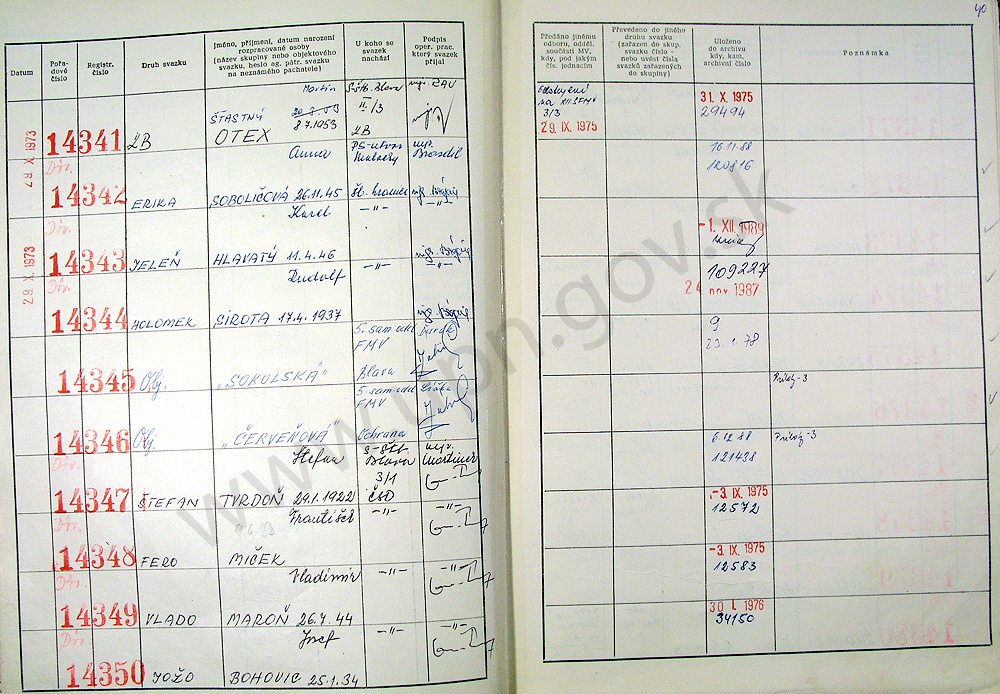 40
Datum
Pořadové číslo
Registr. číslo
Druh svazku
Jméno, příjmení, datum narození
rozpracované osoby
(název skupiny nebo objektového
svazku, heslo ag. pátr. svazku
na neznámého pachatele)
U koho se
svazek
nachází
Podpis
oper. prac.
který svazek
přijal
Předáno jinému
odboru, odděl.
součásti MV,
kdy, pod jakým
čís. jednacím
Převedeno do jiného
druhu svazku
(zařazen do skup.
svazku číslo -
nebo uvést čísla
svazků zařazených
do skupiny)
Uloženo
do archivu
kdy, kam,
archivní číslo
Poznámka
29. X. 1973
14341 ŠTASTNÝ Martin
8.7.1953
OTEX
II/3
3/3
29. IX. 1975
31. X. 1975
29494
Div.
14342 ERIKA SOBOLIČOVÁ Anna 26.11.45
10.11.88
120816
Div.
29. X. 1973
14343 JELEŇ HLAVATÝ Karel 11.4.46 -"- -"-
-1. XII. 1989
Div.
14344 HOLOMEK SIROTA Rudolf 17.4.1937 -"-
109227
24 nov 1987
14345 Obj. "SOKOLSKÁ" 5. sam odd FMV Blava
9
23.1.78
Príloh-3
14346 Obj. "ČERVEŇOVÁ" 5 sam odd FMV Ochrana
Príloh-3
Div.
14347 ŠTEFAN TVRDOŇ Štefan 29.1.1922 S-ŠtB Blava 3/1 ČSD
6.12.88
121438
Div.
14348 FERO MIČEK František -"- -"-
-3. IX. 1975
12572
Div.
14349 VLADO MAROŇ Vladimír 26.4.44 -"- -"-
-3. IX. 1975
12583
Div.
14350 JOŽO BOHOVIC Jozef 25.1.34 -"- -"-
30. I. 1976
34150
www.upn.gov.sk